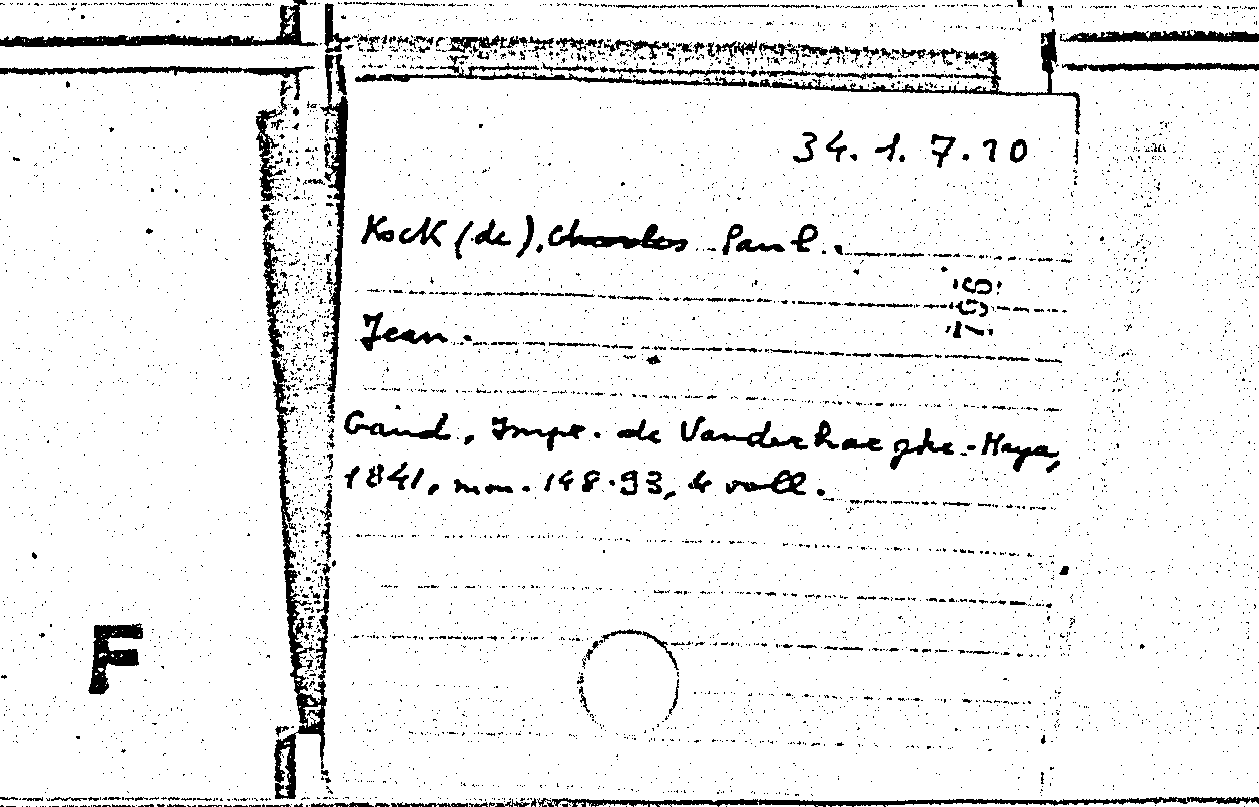 34. 1. 7. 10
Kock (de), Charles Paul.
195
Jean.
Gand, Impr. de Vanderhaeghe-Maya,
1841, mm. 148.93, 4 voll.
F